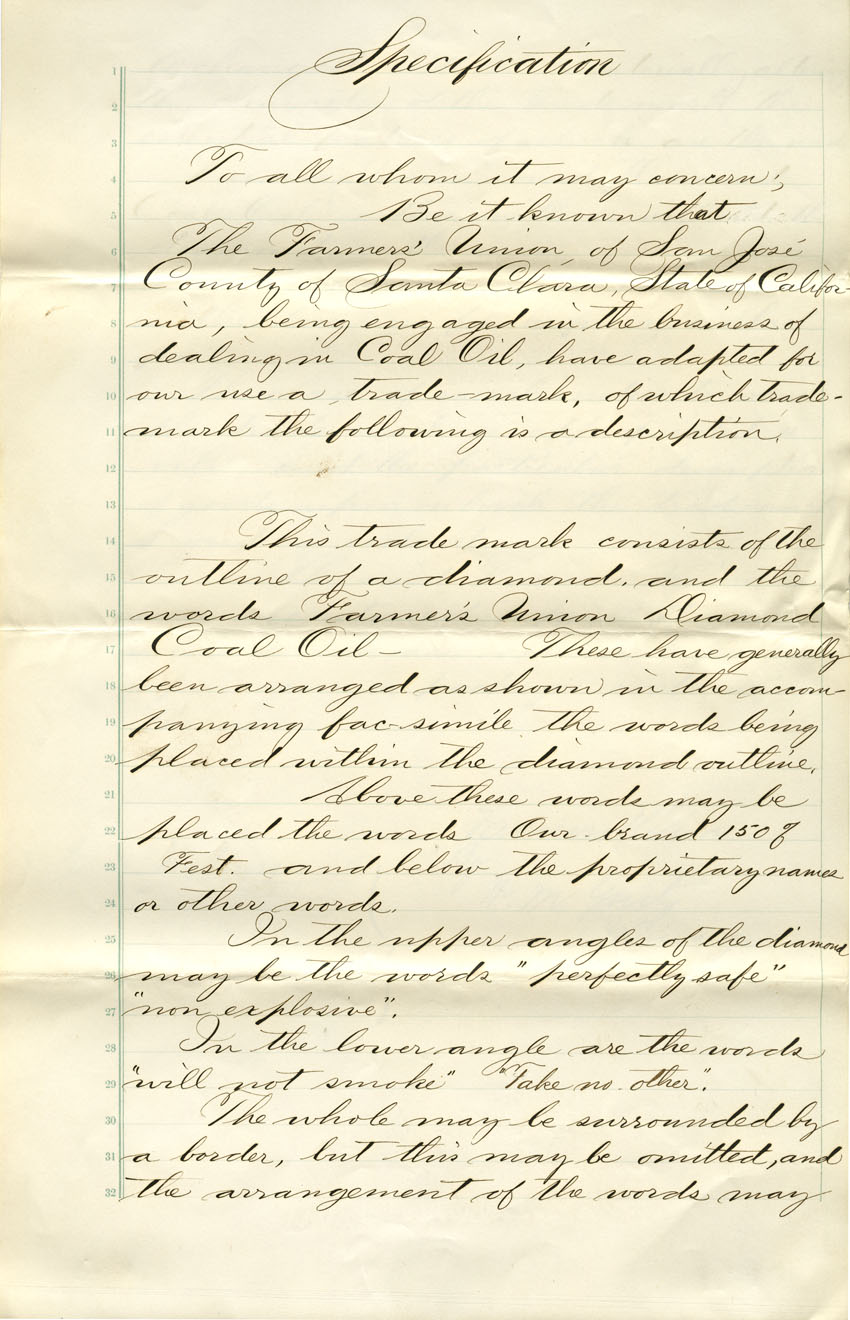 Specification
1
2
3
4 To all whom it may concern;
5 Be it known that
6 The Farmers' Union, of San José
7 County of Santa Clara, State of Califor-
8 nia, being engaged in the business of
9 dealing in Coal Oil, have adapted for
10 our use a trade-mark, of which trade-
11 mark the following is a description.
12
13
14 This trade mark consists of the
15 outline of a diamond. and the
16 words Farmer's Union Diamond
17 Coal Oil- These have generally
18 been arranged as shown in the accom-
19 panying fac-simile the words being
20 placed within the diamond outline.
21 Above these words may be
22 placed the words Our brand 150°
23 Fest. and below the proprietary names
24 or other words.
25 In the upper angles of the diamond
26 may be the words "perfectly safe"
27 "non explosive".
28 In the lower angle are the words
29 "will not smoke" "Take no other".
30 The whole may be surrounded by
31 a border, but this may be omitted, and
32 the arrangement of the words may